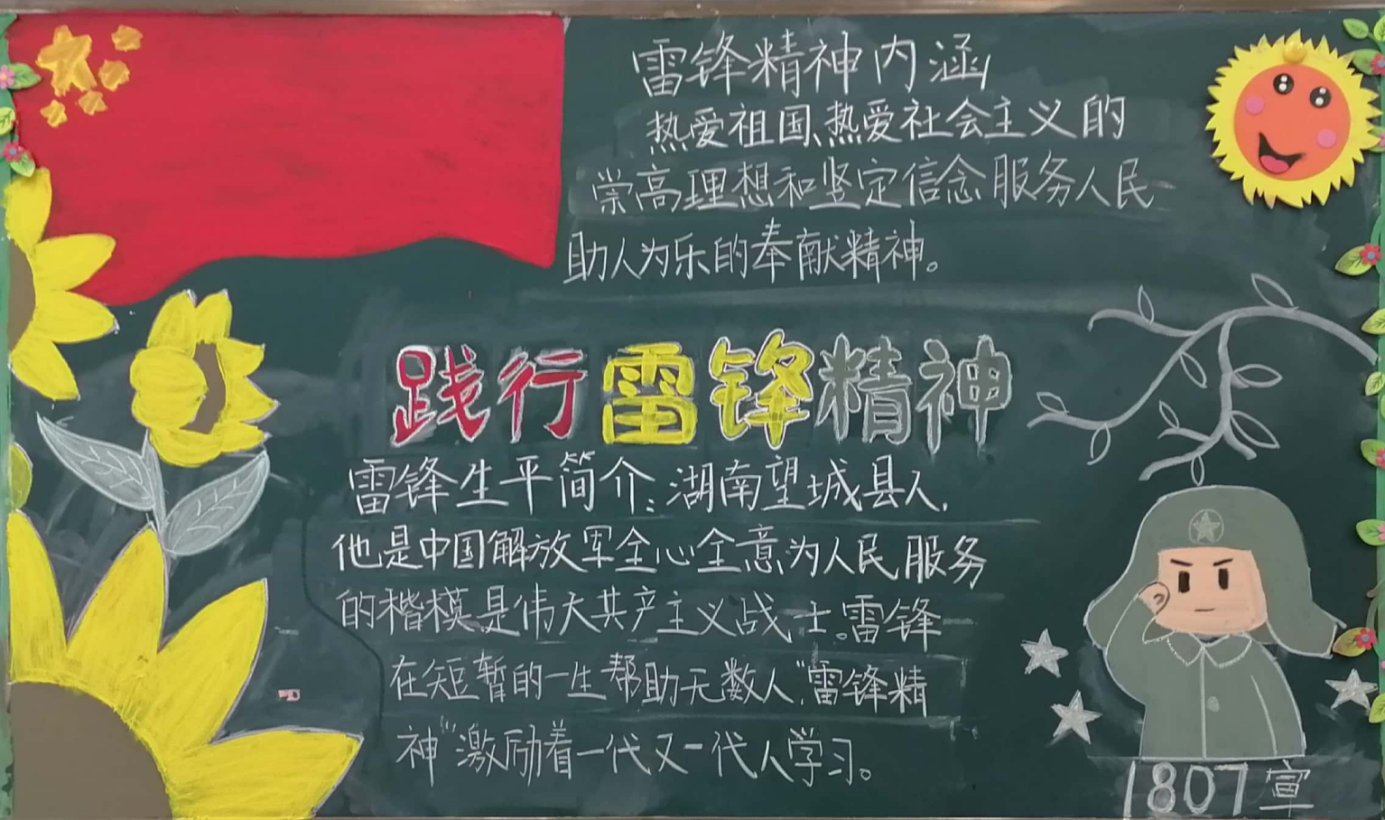 雷锋精神内涵
热爱祖国、热爱社会主义的
崇高理想和坚定信念服务人民
助人为乐的奉献精神。
践行雷锋精神
雷锋生平简介:湖南望城县人,
他是中国解放军全心全意为人民服务
的楷模是伟大共产主义战士。雷锋
在短暂的一生帮助无数人,"雷锋精
神"激励着一代又一代人学习。
1807宣